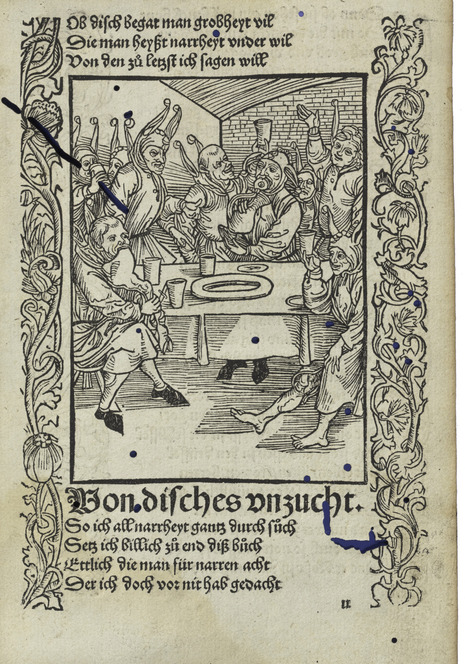 Ob disch begat man grobheyt vil
Die man heyßt narrheyt vnder wil
Von den zů letzst ich sagen will
Von disches vnzucht.
So ich all narrheyt gantz durch sůch
Setz ich billich zů end diß bůch
Ettlich die man für narren acht
Der ich doch vor nit hab gedacht